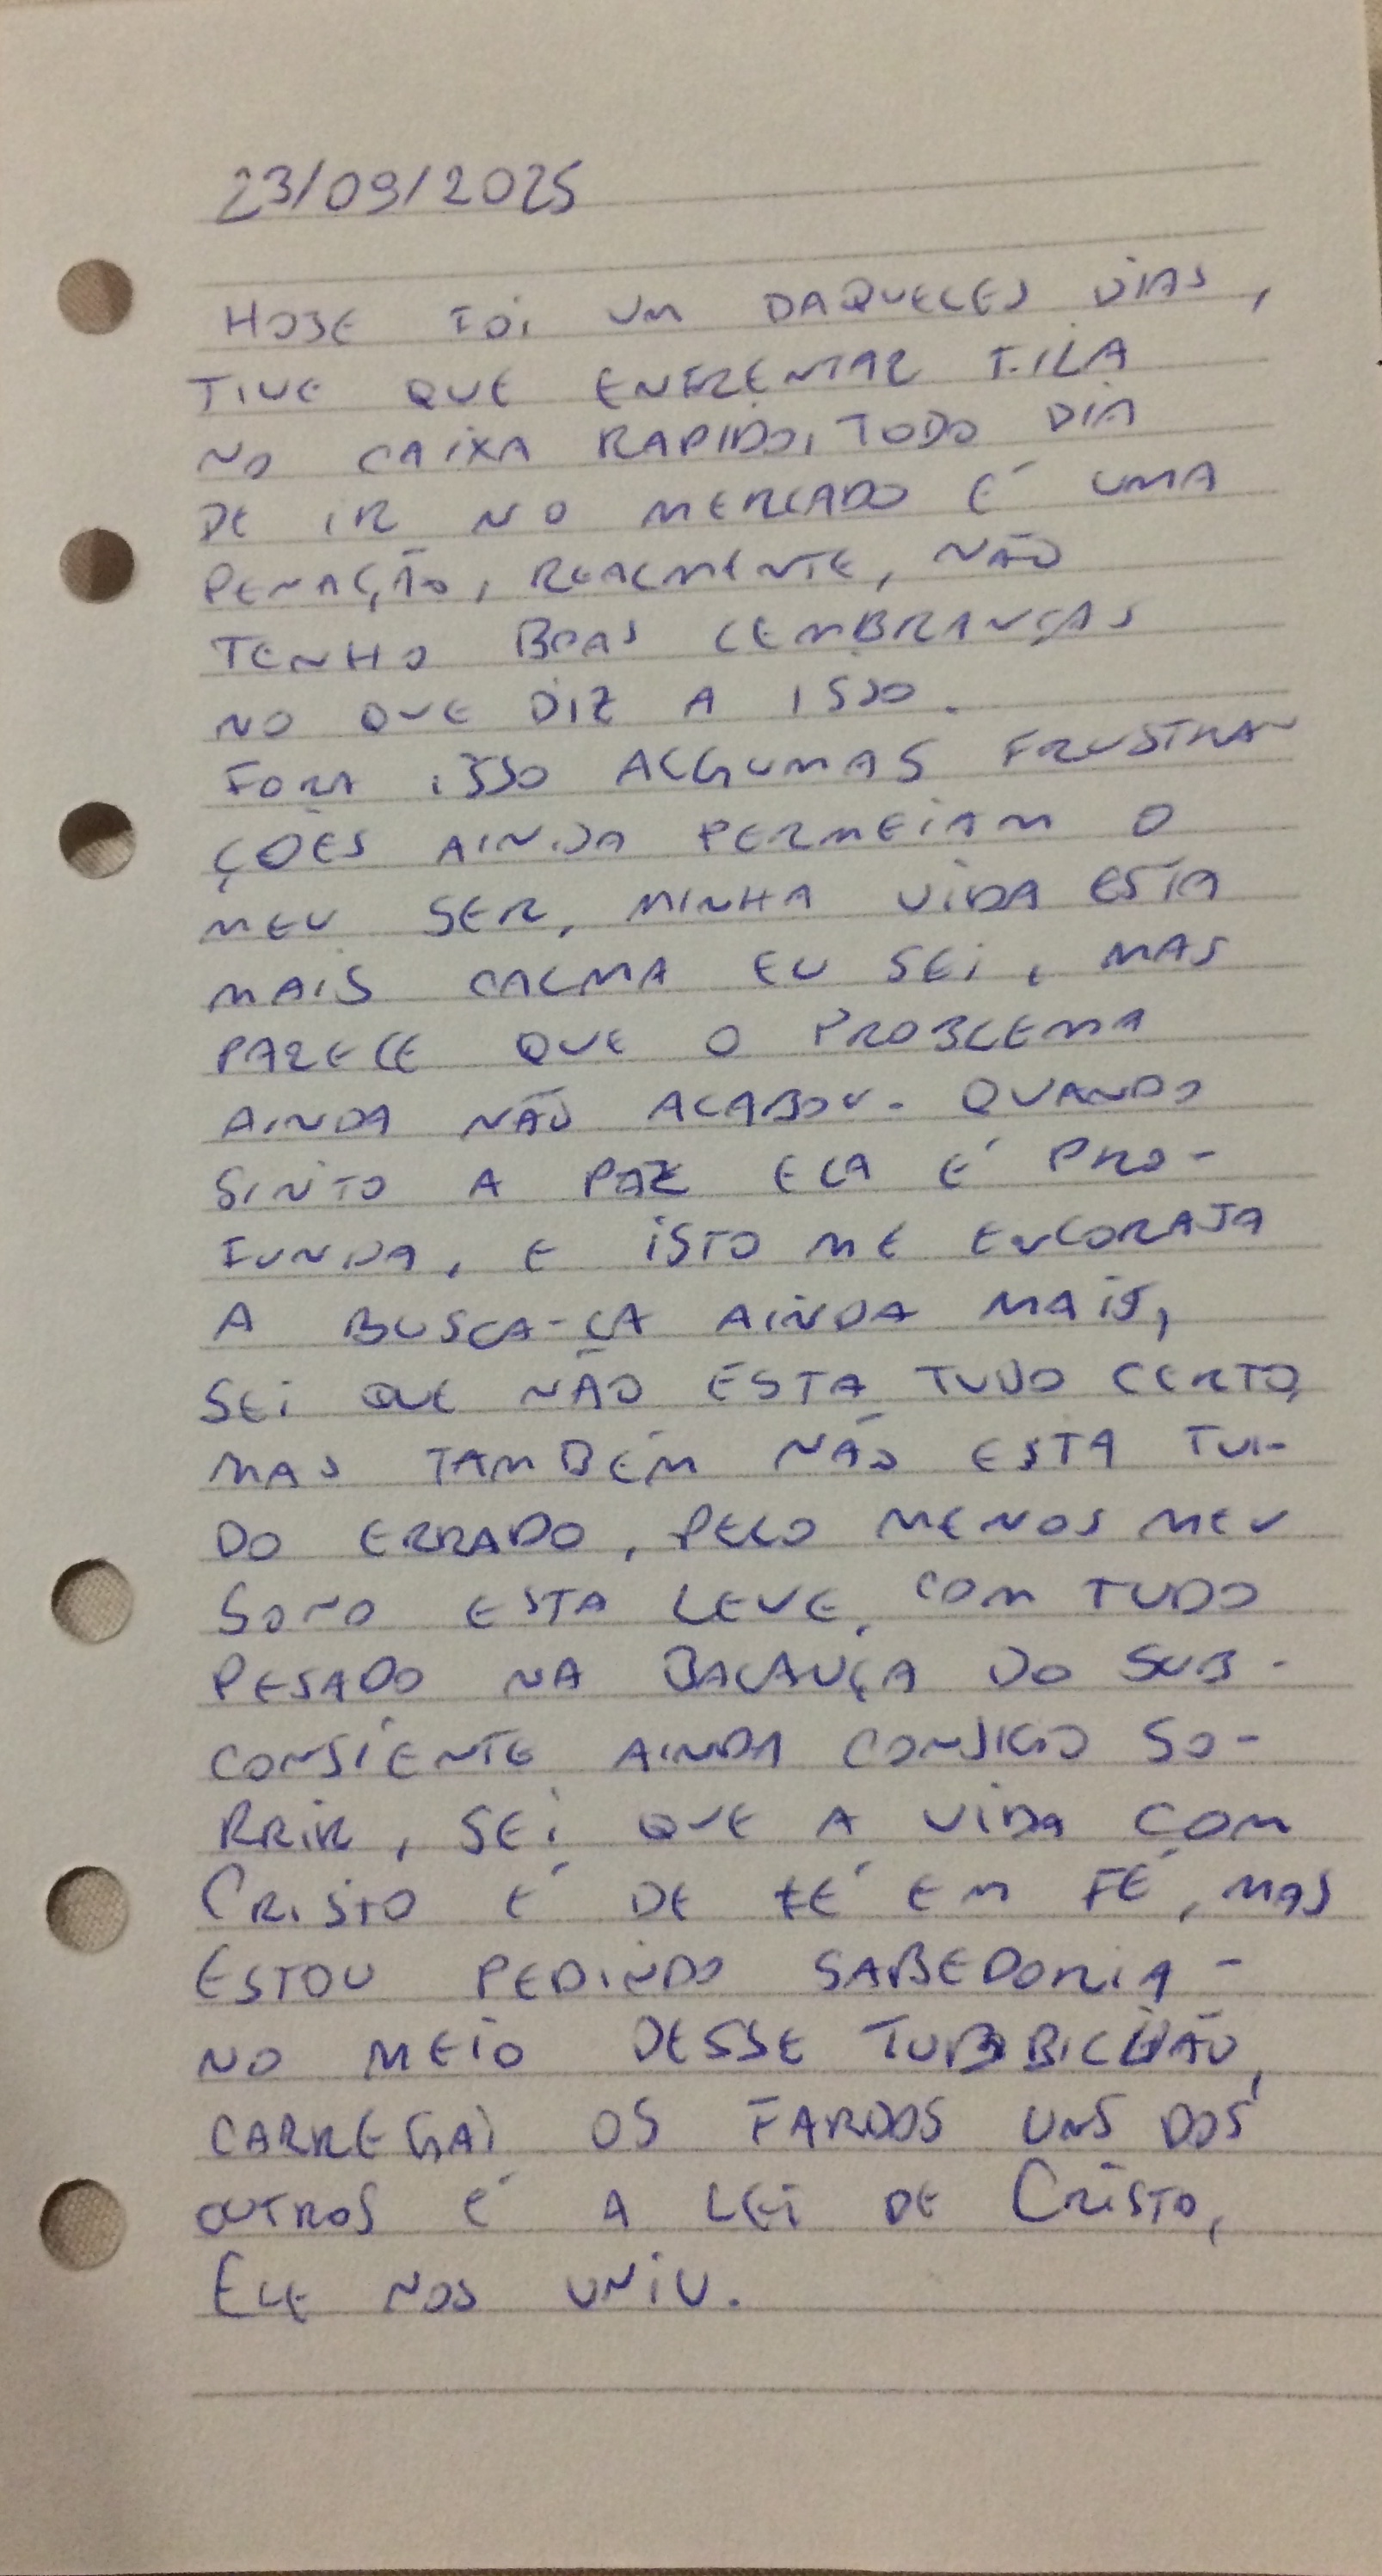 23/09/2025
HOJE FOI UM DAQUELES DIAS,
TIVE QUE ENFRENTAR FILA
NO CAIXA RAPIDO, TODO DIA
DE IR NO MERCADO É UMA
PENAÇÃO, REALMENTE, NÃO
TENHO BOAS LEMBRANÇAS
NO QUE DIZ A ISSO.
FORA ISSO ALGUMAS FRUSTRA-
ÇÕES AINDA PERMEIAM O
MEU SER, MINHA VIDA ESTA
MAIS CALMA EU SEI, MAS
PARECE QUE O PROBLEMA
AINDA NÃO ACABOU. QUANDO
SINTO A PAZ ELA É PRO-
FUNDA, E ISTO ME ENCORAJA
A BUSCA-LA AINDA MAIS,
SEI QUE NÃO ESTA TUDO CERTO,
MAS TAMBÉM NÃO ESTA TU-
DO ERRADO, PELO MENOS MEU
SONO ESTA LEVE, COM TUDO
PESADO NA BALANÇA DO SUB-
CONSIENTE AINDA CONSIGO SO-
RRIR, SEI QUE A VIDA COM
CRISTO É DE FÉ EM FÉ, MAS
ESTOU PEDINDO SABEDORIA -
NO MEIO DESSE TURBILHÃO,
CARREGAI OS FARDOS UNS DOS
OUTROS É A LEI DE CRISTO,
ELE NOS UNIU.